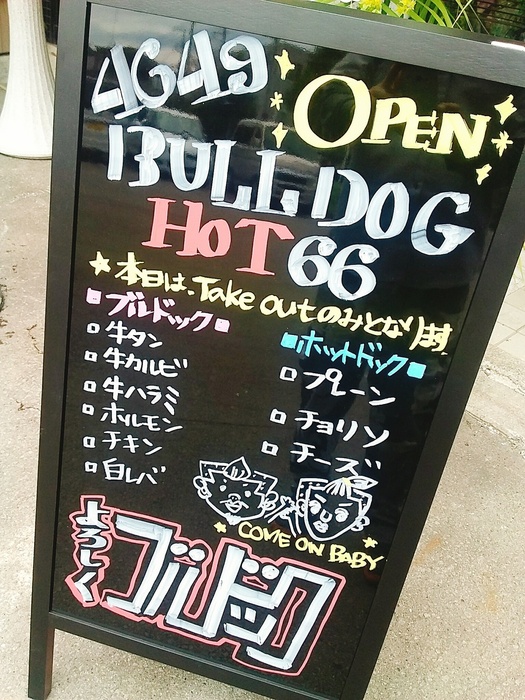 4649
OPEN
BULLDOG
HOT 66
★本日は、Take outのみとなります
■ブルドック■
□牛タン
□牛カルビ
□牛ハラミ
□ホルモン
□チキン
□白レバ
■ホットドック■
□プレーン
□チョリソ
□チーズ
COME ON BABY
よろしく
ブルドック